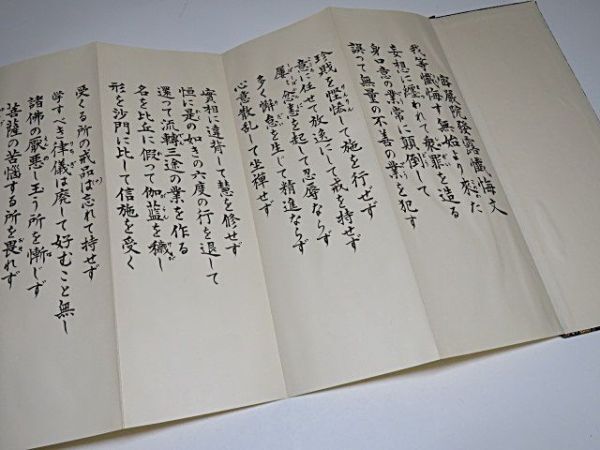 密厳院発露懺悔文
我等懺悔す無始より来た
妄想に纏われて衆罪を造る
身口意の業常に顛倒して
誤って無量の不善の業を犯す
珍財を慳悋して施を行ぜず
意に任せて放逸にして戒を持せず
屡忿恚を起して忍辱ならず
多く懈怠を生じて精進ならず
心意散乱して坐禅せず
實相に違背して慧を修せず
恒に是の如きの六度の行を退して
還って流轉三途の業を作る
名を比丘に假って伽藍を穢し
形を沙門に比して信施を受く
受くる所の戒品は忘れて持せず
学すべき律儀は廃して好むこと無し
諸佛の厭悪し玉う所を慚じず
菩薩の苦惱する所を畏れず